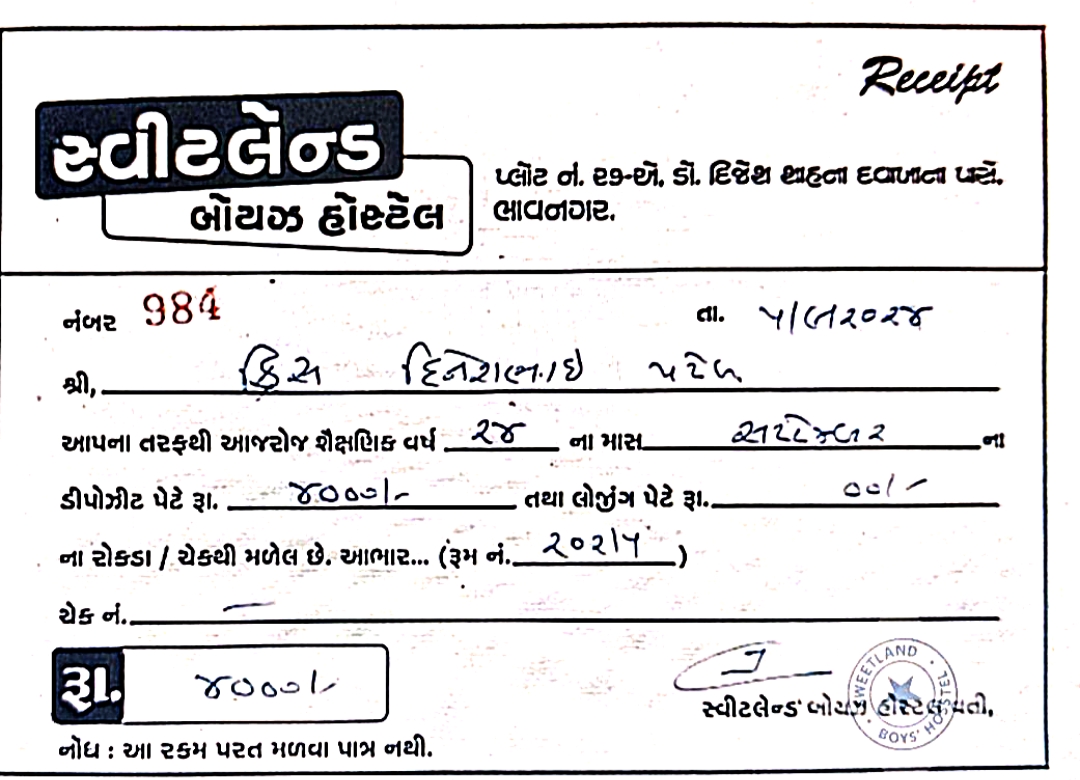 Receipt
સ્વીટલેન્ડ
બોયઝ હોસ્ટેલ
પ્લોટ નં. ૨૭-એ, ડૉ. દિજેશ શાહના દવાખાના પાસે.
ભાવનગર.
નંબર 984 તા. ૫/૯/૨૦૨૪
શ્રી, ક્રિસ દિનેશભાઈ પટેલ
આપના તરફથી આજરોજ શૈક્ષણિક વર્ષ ૨૪ ના માસ સપ્ટેમ્બર ના
ડીપોઝીટ પેટે રૂા. ૪૦૦૦/- તથા લોજીંગ પેટે રૂા. ૦૦/-
ના રોકડા / ચેકથી મળેલ છે. આભાર... (રૂમ નં. ૨૦૨/૫)
ચેક નં. —
રૂા. ૪૦૦૦/-
સ્વીટલેન્ડ બોયઝ હોસ્ટેલ વતી,
SWEETLAND BOYS' HOSTEL
નોધ : આ રકમ પરત મળવા પાત્ર નથી.